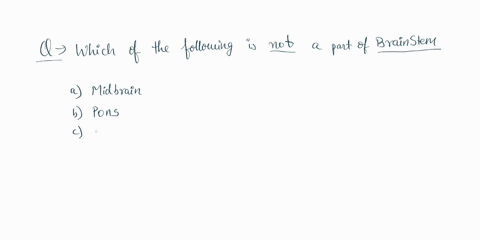 Q→ Which of the following is not a part of BrainStem
a) Midbrain
b) Pons
c)